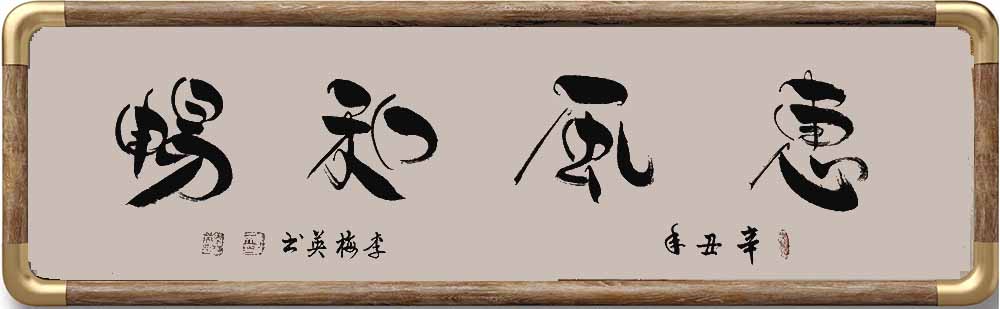 惠風和暢
辛丑年
李梅英书